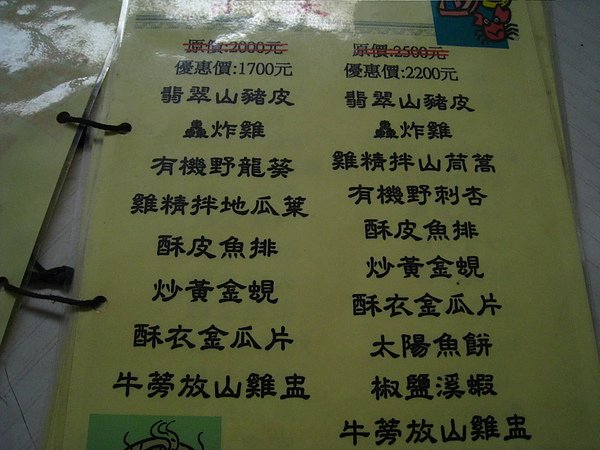 原價:2000元
優惠價:1700元
翡翠山豬皮
驫炸雞
有機野龍葵
雞精拌地瓜葉
酥皮魚排
炒黃金蜆
酥衣金瓜片
牛蒡放山雞盅
原價:2500元
優惠價:2200元
翡翠山豬皮
驫炸雞
雞精拌山茼蒿
有機野刺杏
酥皮魚排
炒黃金蜆
酥衣金瓜片
太陽魚餅
椒鹽溪蝦
牛蒡放山雞盅